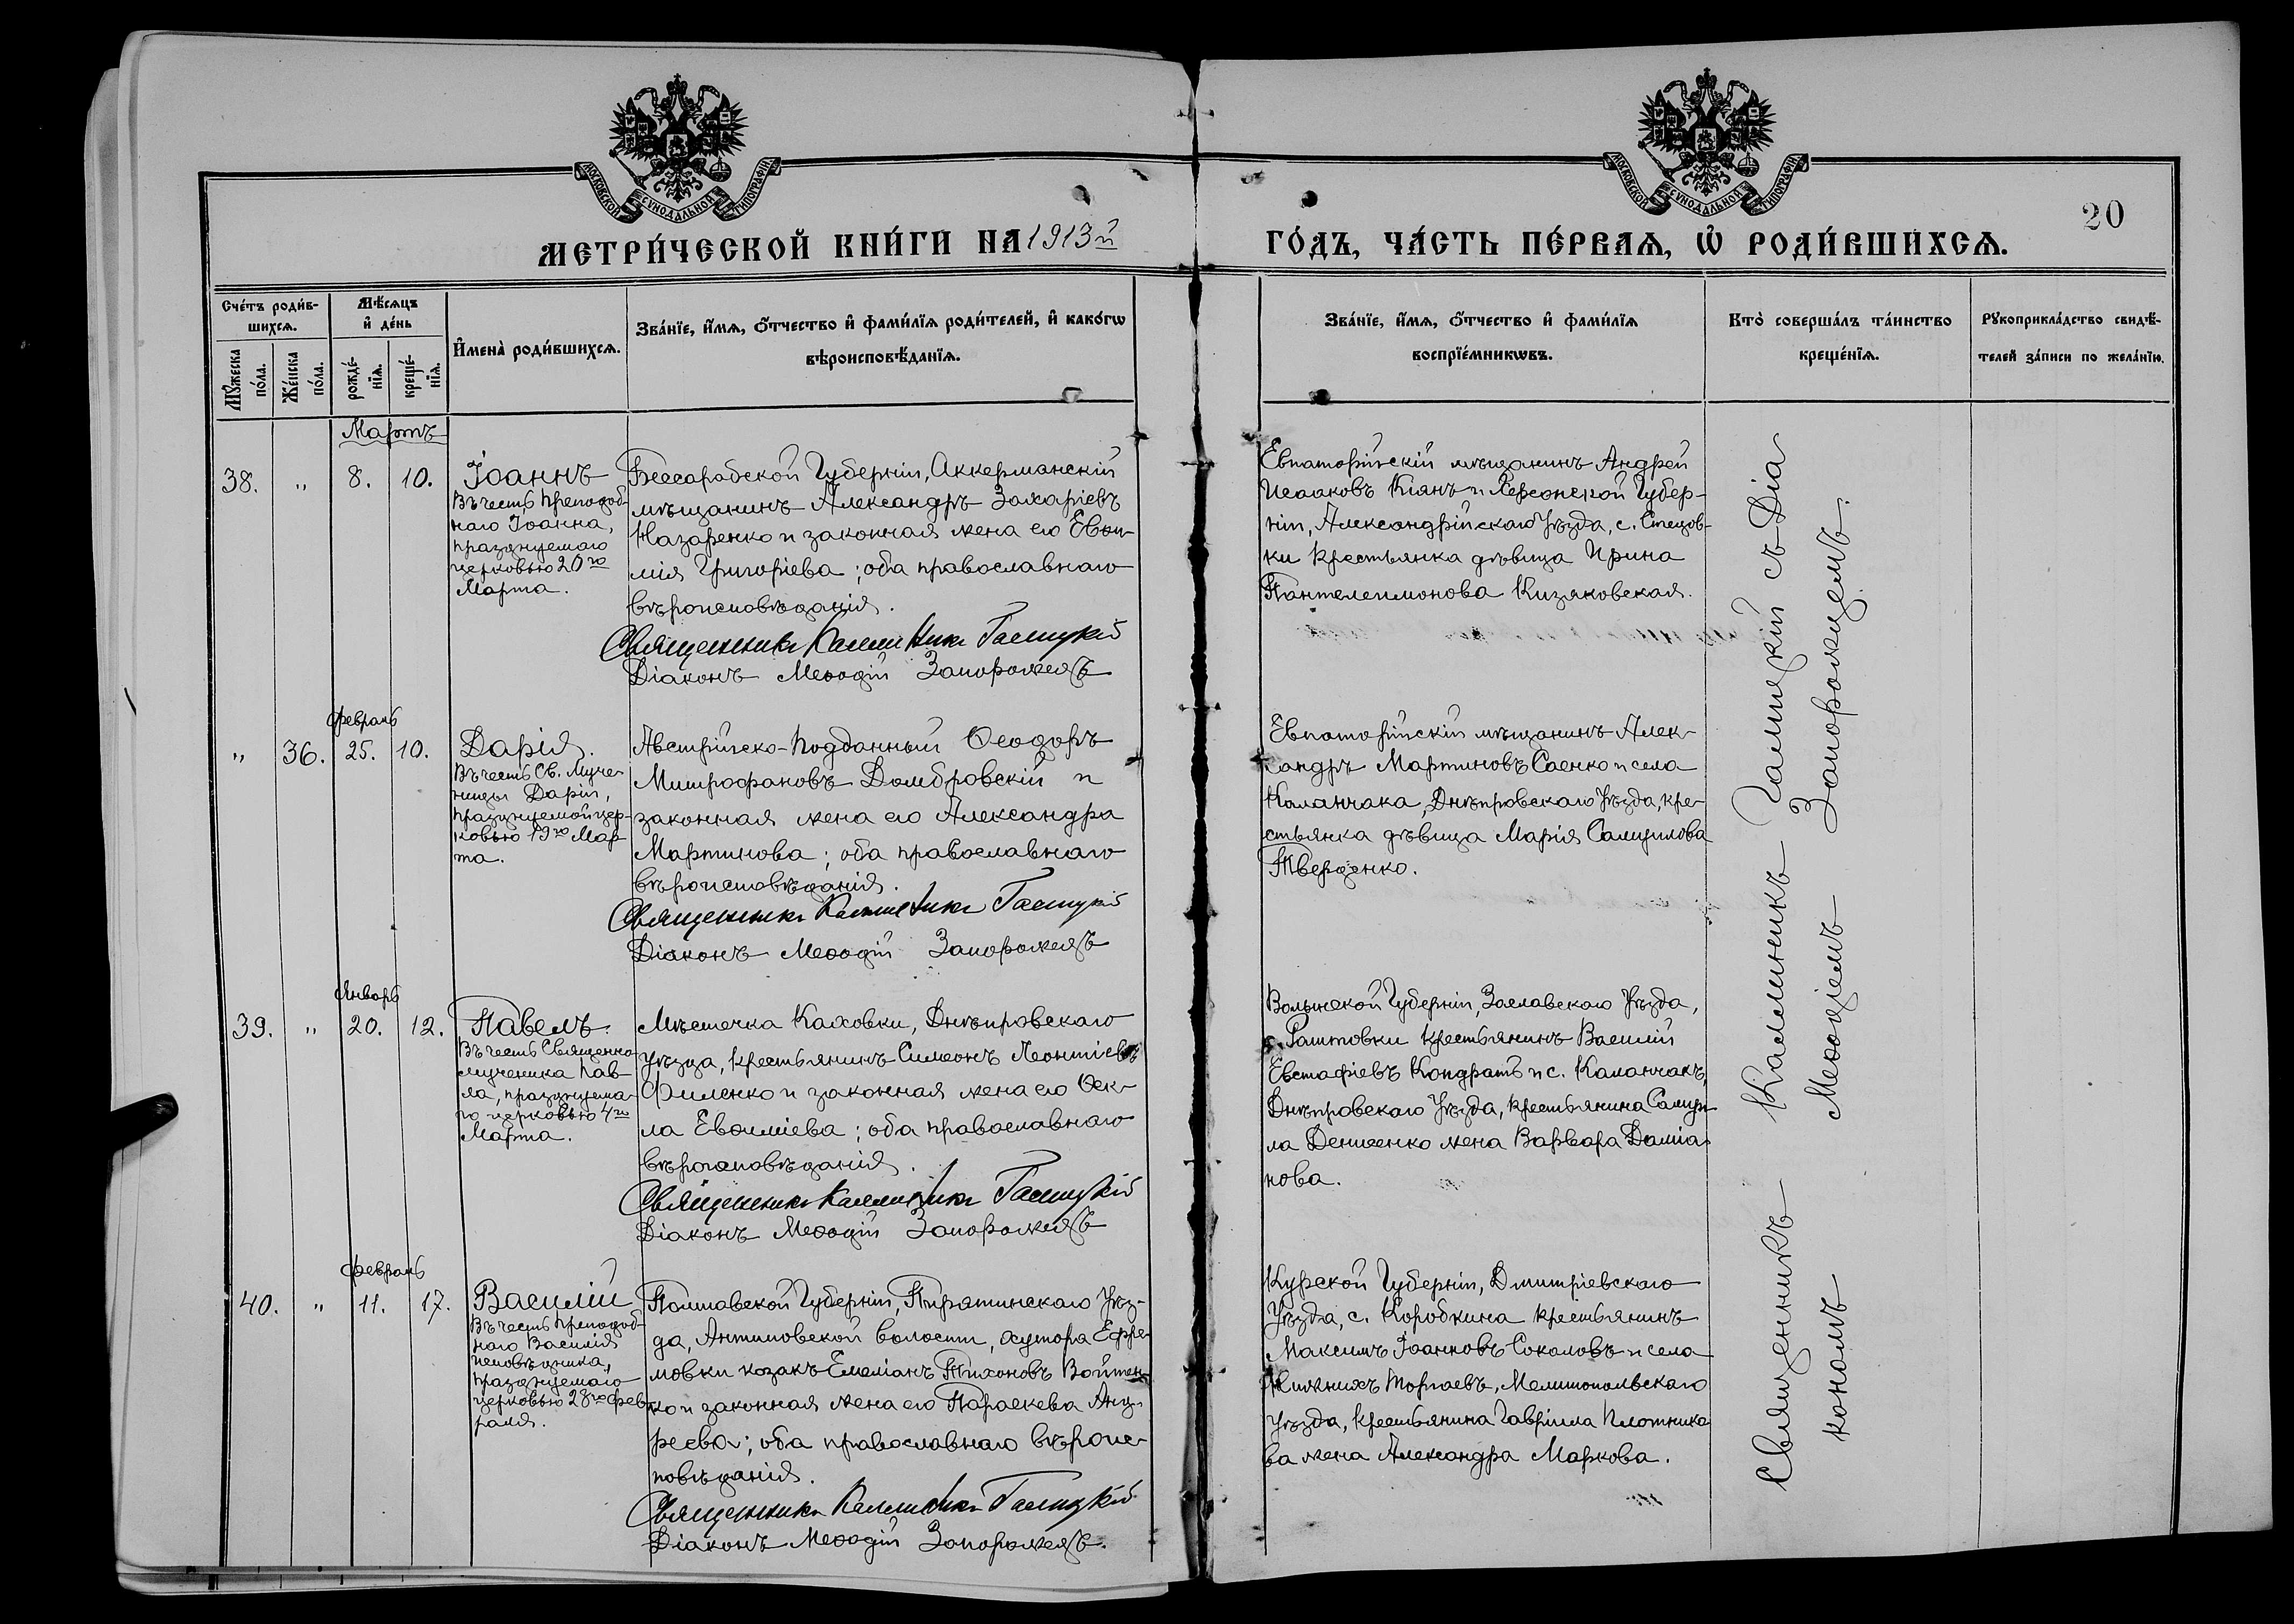 МОСКОВСКОЙ СУНОДАЛЬНОЙ ТИПОГРАФІИ
МОСКОВСКОЙ СУНОДАЛЬНОЙ ТИПОГРАФІИ
20
МЕТРИ́ЧЕСКОЙ КНИ́ГИ НА 1913й
ГО́ДЪ, ЧА́СТЬ ПЕ́РВАѦ, Ѡ҆ РОДИ́ВШИХСѦ.
Сче́тъ роди́в-
шихсѧ.
Мѣ́сѧцъ
и҆ де́нь
И҆мена̀ роди́вшихсѧ.
Зва́нїе, и҆́мѧ, ѻ҆́тчество и҆ фами́лїѧ роди́телей, и҆ како́гѡ
вѣроисповѣ́данїѧ.
Зва́нїе, и҆́мѧ, ѻ҆́тчество и҆ фами́лїѧ
воспрїе́мникѡвъ.
Кто̀ соверша́лъ та́инство
креще́нїѧ.
Рꙋкоприкла́дство свидѣ́-
телей за́писи по жела́нїю.
Мꙋ́жеска
по́ла.
Же́нска
по́ла.
рожде́-
нїѧ.
креще́-
нїѧ.
Мартъ
38. „ 8. 10.
Іоаннъ
Въ честь преподоб-
наго Іоанна,
празднуемаго
церковью 20го
Марта.
Бессарабской Губерніи, Аккерманскій
мѣщанинъ Александръ Захаріевъ
Назаренко и законная жена его Евѳи-
мія Григоріева; оба православнаго
вѣроисповѣданія.
Священникъ Каллиникъ Галицкій
Діаконъ Меѳодій Запорожецъ
Евпаторійскій мѣщанинъ Андрей
Исааковъ Кіянъ и Херсонской Губер-
ніи, Александрійскаго уѣзда, с. Стецов-
ки крестьянка дѣвица Ирина
Пантелеимонова Кизяковская.
Февраль
„ 36. 25. 10.
Дарія.
Въ честь Св. Муче-
ницы Даріи,
празднуемой цер-
ковью 19го Мар-
та.
Австрійско-подданный Ѳеодоръ
Митрофановъ Домбровскій и
законная жена его Александра
Мартинова; оба православнаго
вѣроисповѣданія.
Священникъ Каллиникъ Галицкій
Діаконъ Меѳодій Запорожецъ
Евпаторійскій мѣщанинъ Алек-
сандръ Мартиновъ Саенко и села
Каланчака, Днѣпровскаго уѣзда, кре-
стьянка дѣвица Марія Самуилова
Тверденко.
Январь
39. „ 20. 12.
Павелъ.
Въ честь Священно-
мученика Пав-
ла, празднуема-
го церковью 4го
Марта.
Мѣстечка Каховки, Днѣпровскаго
уѣзда, крестьянинъ Симеонъ Леонтіевъ
Филенко и законная жена его Ѳек-
ла Евѳиміева; оба православнаго
вѣроисповѣданія.
Священникъ Каллиникъ Галицкій
Діаконъ Меѳодій Запорожецъ
Волынской Губерніи, Заславскаго уѣзда,
с. крестьянинъ Василій
Евстафіевъ Кондрать и с. Каланчакъ,
Днѣпровскаго уѣзда, крестьянина Самуи-
ла Денисенко жена Варвара Даміа-
нова.
Февраль
40. „ 11. 17.
Василій
Въ честь преподоб-
наго Василія
исповѣдника,
празднуемаго
церковью 28го Фев-
раля.
Полтавской Губерніи, Пирятинскаго уѣз-
да, Антиповской волости, хутора Ефре-
мовки козакъ Емеліанъ Тихоновъ Войтен-
ко и законная жена его Параскева Анд-
реева; оба православнаго вѣроис-
повѣданія.
Священникъ Каллиникъ Галицкій
Діаконъ Меѳодій Запорожецъ.
Курской Губерніи, Дмитріевскаго
уѣзда, с. Коробкина крестьянинъ
Максимъ Іоанновъ Соколовъ и села
Нижнихъ Торгаевъ, Мелитопольскаго
уѣзда, крестьянина Гавріила Плотнико-
ва жена Александра Маркова.
Священникъ Каллиникъ Галицкій съ Діа-
кономъ Меѳодіемъ Запорожцемъ.